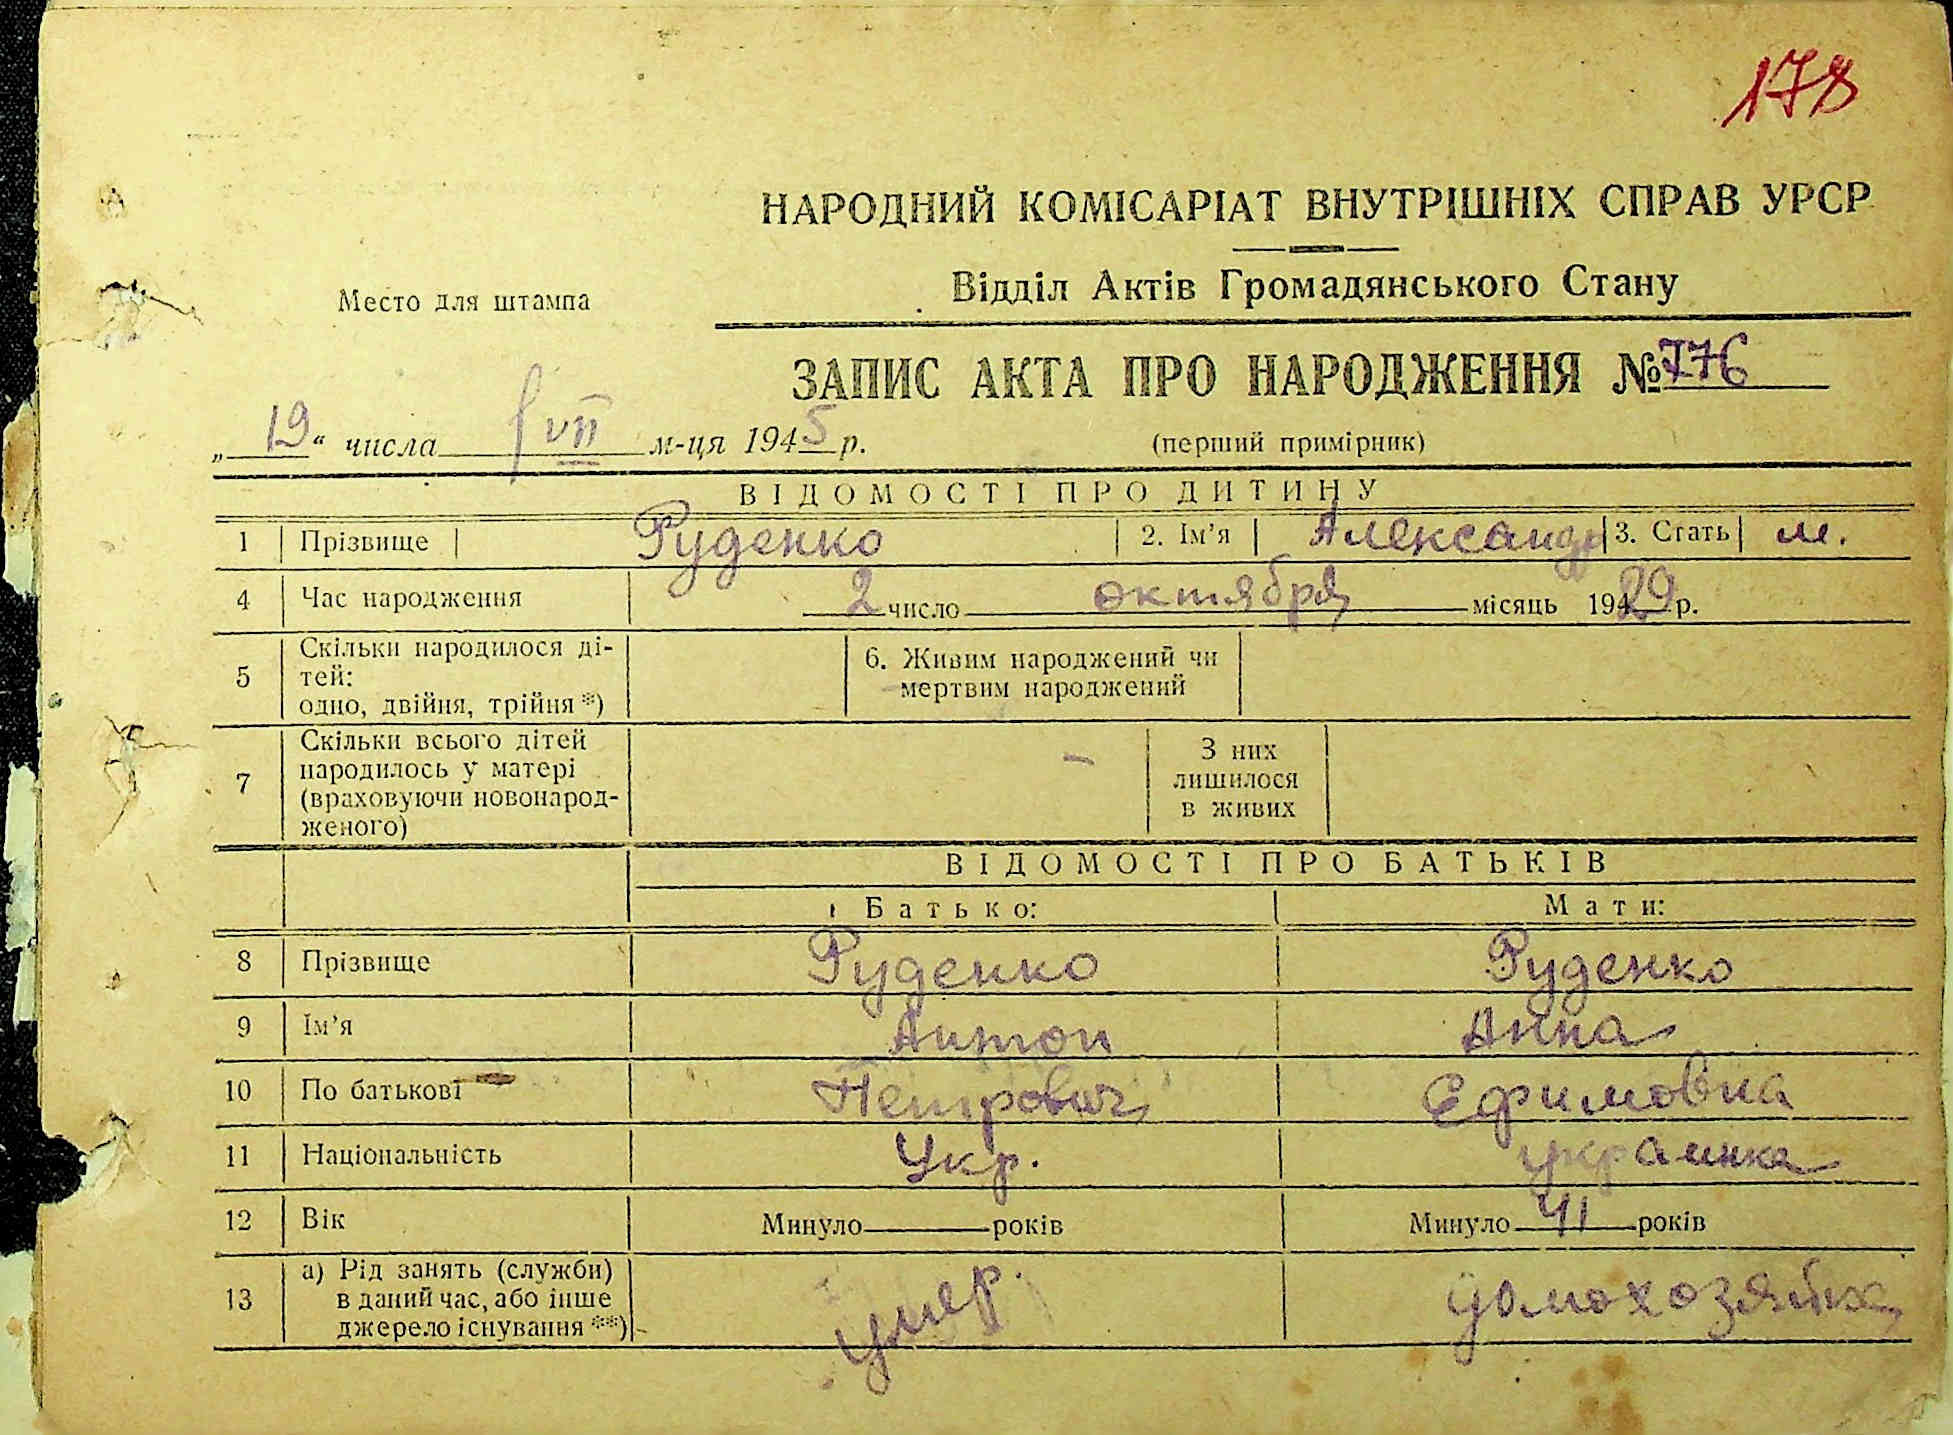 178
НАРОДНИЙ КОМІСАРІАТ ВНУТРІШНІХ СПРАВ УРСР
Відділ Актів Громадянського Стану
Место для штампа
ЗАПИС АКТА ПРО НАРОДЖЕННЯ № 776
„19“ числа VII м-ця 1945 р.
(перший примірник)
ВІДОМОСТІ ПРО ДИТИНУ
1 Прізвище Руденко 2. Ім’я Александр 3. Стать м.
4 Час народження 2 число октября місяць 1929 р.
5 Скільки народилося ді-
тей:
одно, двійня, трійня *)
6. Живим народжений чи
мертвим народжений
7 Скільки всього дітей
народилось у матері
(враховуючи новонарод-
женого)
–
З них
лишилося
в живих
ВІДОМОСТІ ПРО БАТЬКІВ
Батько: Мати:
8 Прізвище Руденко Руденко
9 Ім’я Антон Анна
10 По батькові Петрович Ефимовна
11 Національність Укр. украинка
12 Вік Минуло років Минуло 41 років
13 а) Рід занять (служби)
в даний час, або інше
джерело існування **)
умер. домохозяйка